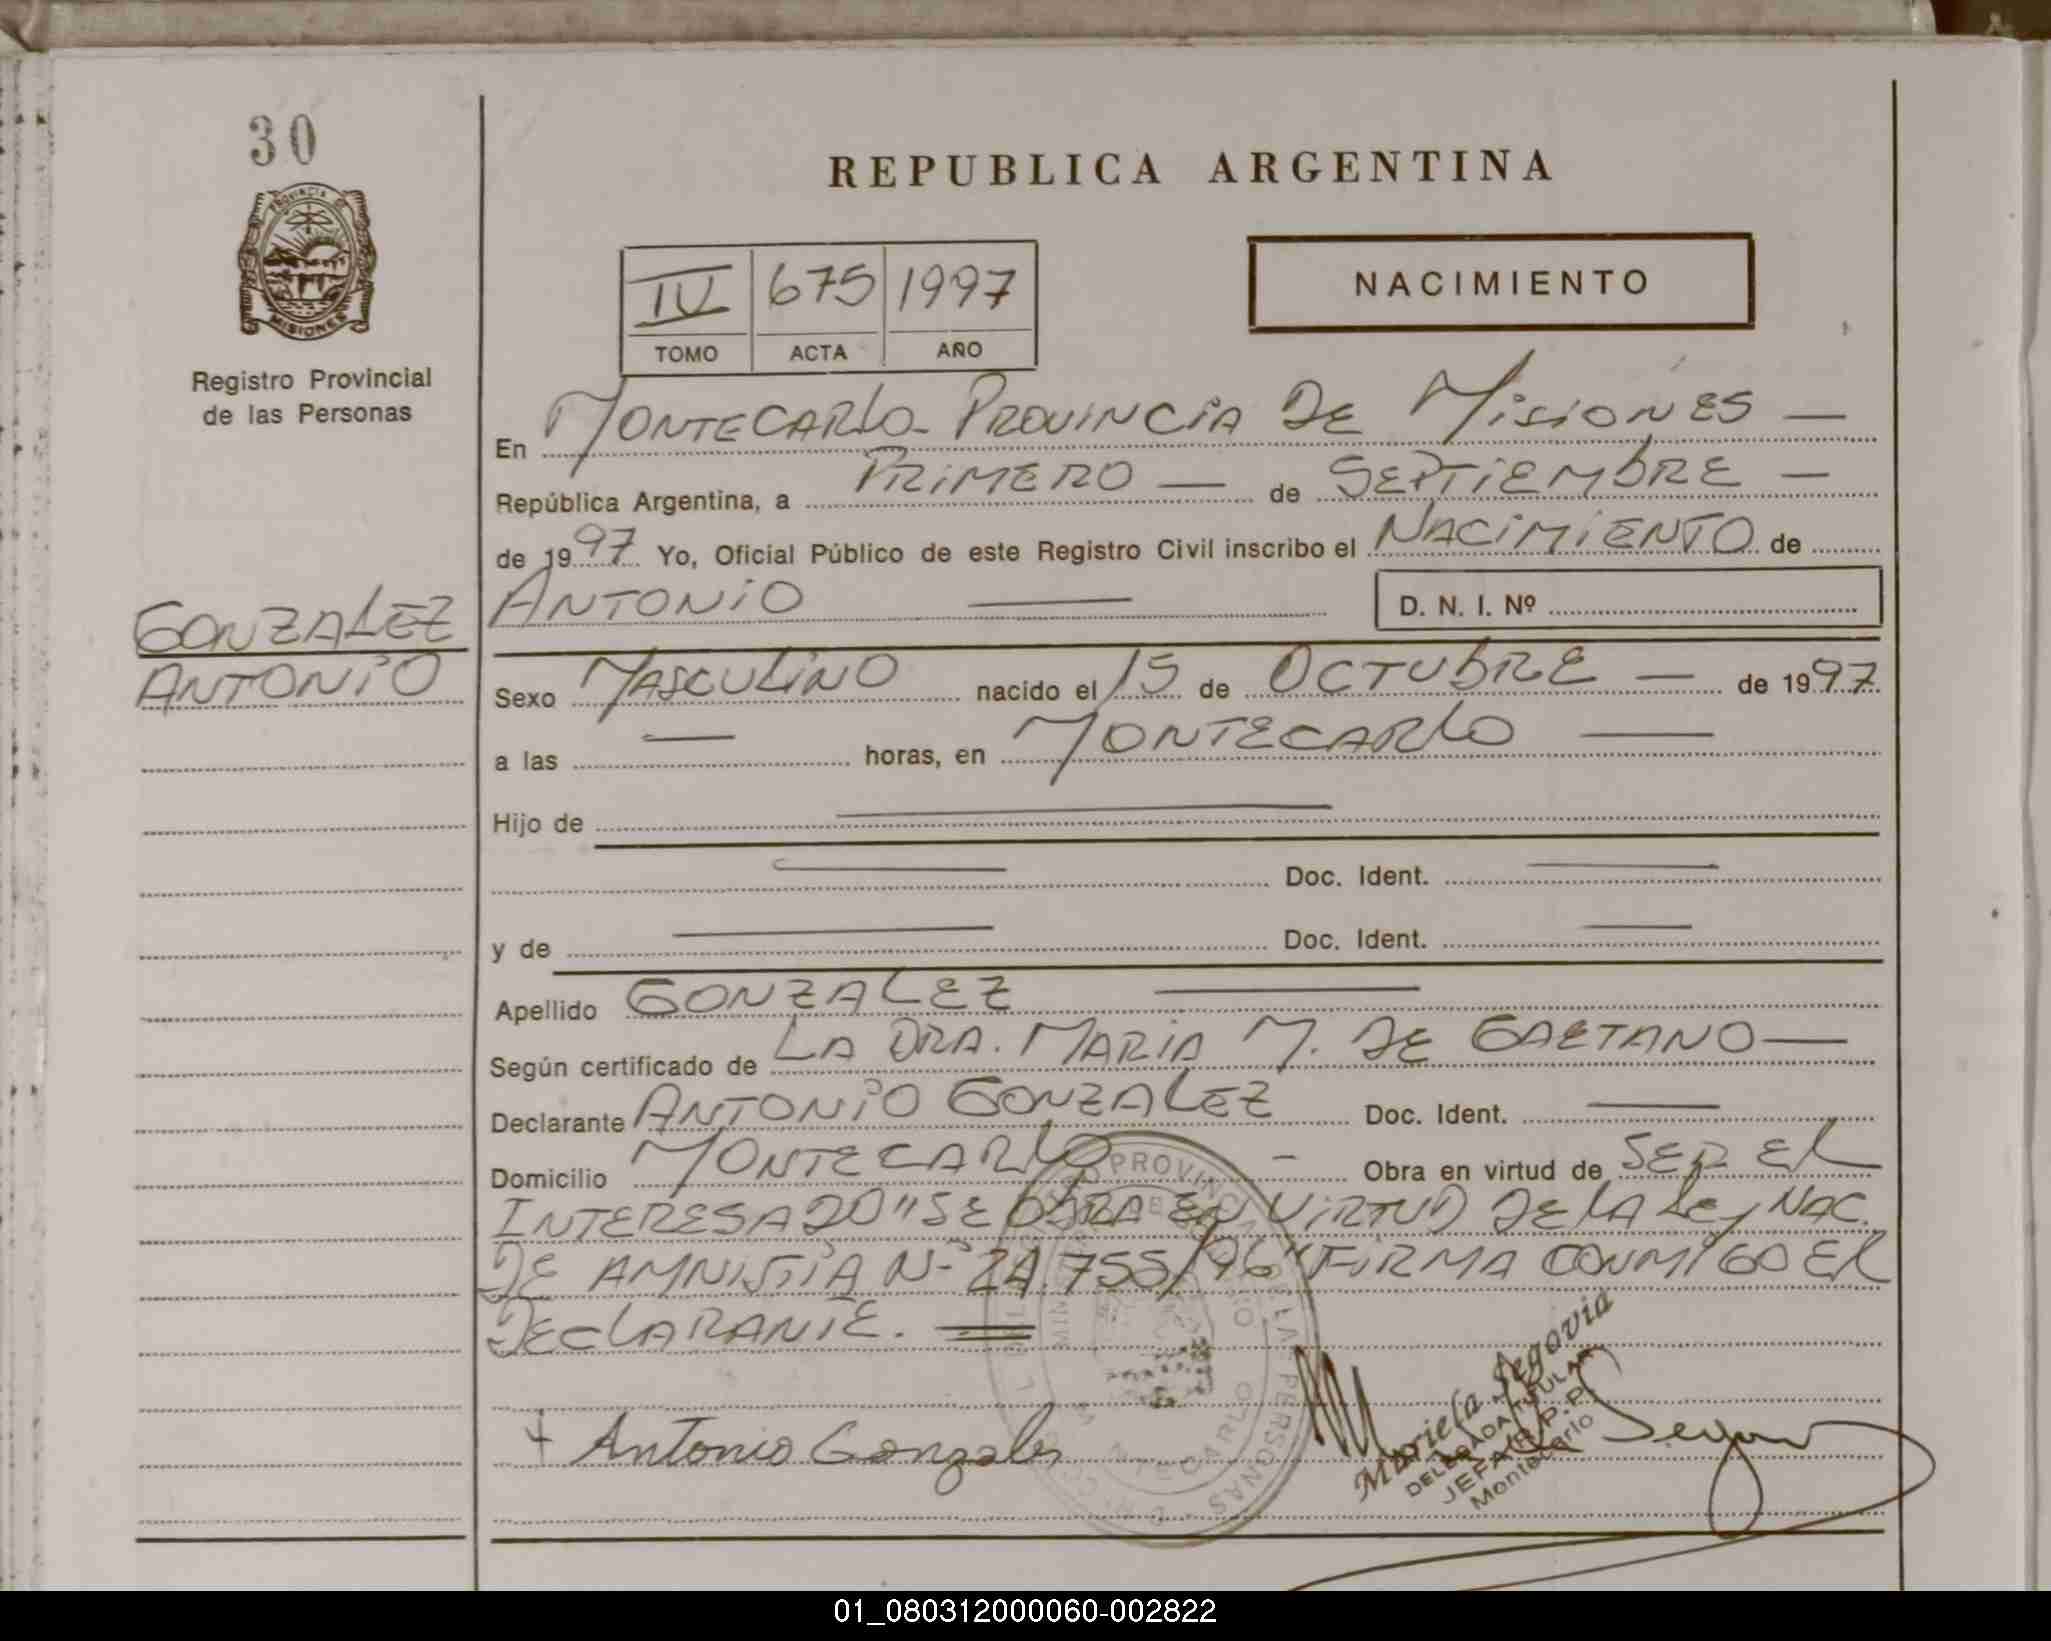 30
PROVINCIA DE
MISIONES
Registro Provincial
de las Personas
GONZALEZ
ANTONIO
REPUBLICA ARGENTINA
IV 675 1997
TOMO ACTA AÑO
NACIMIENTO
En MONTECARLO - PROVINCIA DE MISIONES —
República Argentina, a PRIMERO — de SEPTIEMBRE —
de 1997 Yo, Oficial Público de este Registro Civil inscribo el NACIMIENTO de
ANTONIO — D. N. I. Nº
Sexo MASCULINO nacido el 15 de OCTUBRE — de 1997
a las — horas, en MONTECARLO —
Hijo de —
— Doc. Ident. —
y de — Doc. Ident. —
Apellido GONZALEZ —
Según certificado de LA DRA. MARIA M. DE GAETANO —
Declarante ANTONIO GONZALEZ Doc. Ident. —
Domicilio MONTECARLO - Obra en virtud de SER EL
INTERESADO "SE OBRA EN VIRTUD DE LA LEY NAC.
DE AMNISTIA Nº 24.755/96" FIRMA CONMIGO EL
DECLARANTE. =
+ Antonio Gonzales
Mariela Segovia
DELEGADA TITULAR
JEFA R.P.P.
Montecarlo
01_080312000060-002822